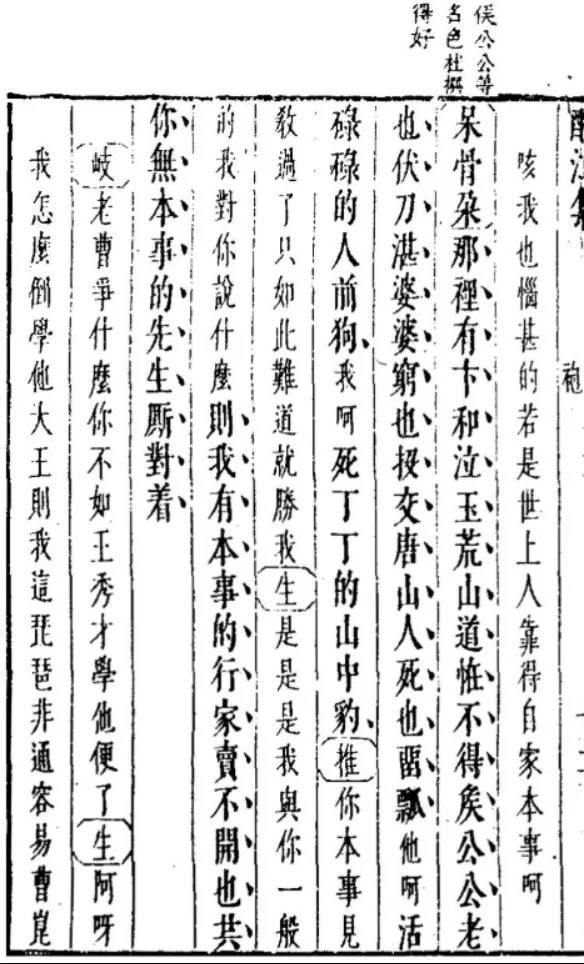 侯公公等
名色杜撰
得好
咳我也惱甚的若是世上人靠得自家本事呵
呆骨朶那裡有卞和泣玉荒山道恠不得矦公公老
也伏刀湛婆婆窮也投交唐山人死也畱瓢他呵活
碌碌的人前狗我呵死丁丁的山中豹推你本事見
教過了只如此難道就勝我生是是是我與你一般
的我對你說什麼則我有本事的行家賣不開也共
你無本事的先生厮對着
岐老曹爭什麼你不如王秀才學他便了生阿呀
我怎麼倒學他大王則我這琵琶非通容易曹崑